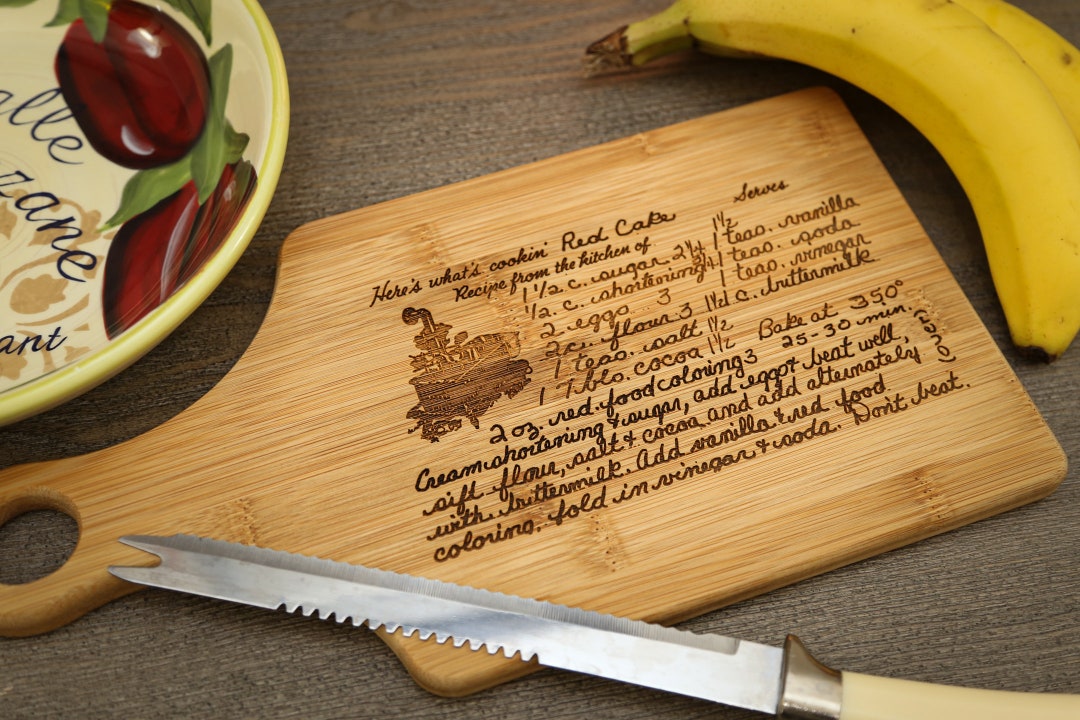 alle
zane
ant
Serves
Here's what's cookin' Red Cake
Recipe from the kitchen of
1 1/2 c. sugar 2 1/4 1 1/2 1 teas. vanilla
1/2 c. shortening 3/4 1 teas. soda
2 eggs 3 1 teas. vinegar
2 c. flour 3 1 1/2 1 c. buttermilk
1 teas. salt 1 1/2
1 Tbls. cocoa 1 1/2 Bake at 350°
2 oz. red food coloring 3 25-30 min.
Cream shortening & sugar, add eggs & beat well,
sift flour, salt & cocoa and add alternately
with buttermilk. Add vanilla & red food
coloring, fold in vinegar & soda. Don't beat.
(over)